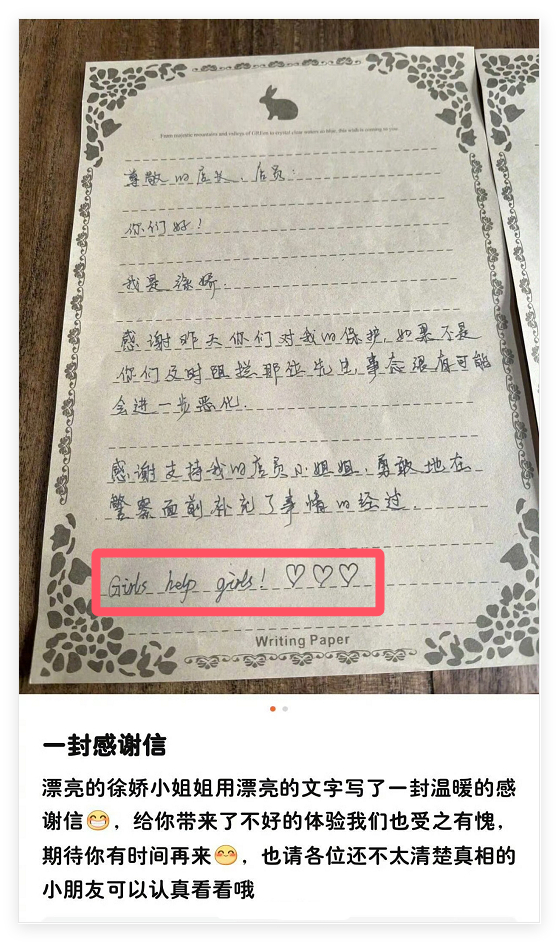 From majestic mountains and valleys of GREen to crystal clear waters so blue, this wish is coming to you.
尊敬的店长、店员:
你们好!
我是徐娇.
感谢昨天你们对我的保护,如果不是
你们及时阻拦那位先生,事态很有可能
会进一步恶化.
感谢支持我的店员小姐姐,勇敢地在
警察面前补充了事情的经过.
Girls help girls! ♡♡♡
Writing Paper
一封感谢信
漂亮的徐娇小姐姐用漂亮的文字写了一封温暖的感
谢信😁,给你带来了不好的体验我们也受之有愧,
期待你有时间再来😊,也请各位还不太清楚真相的
小朋友可以认真看看哦